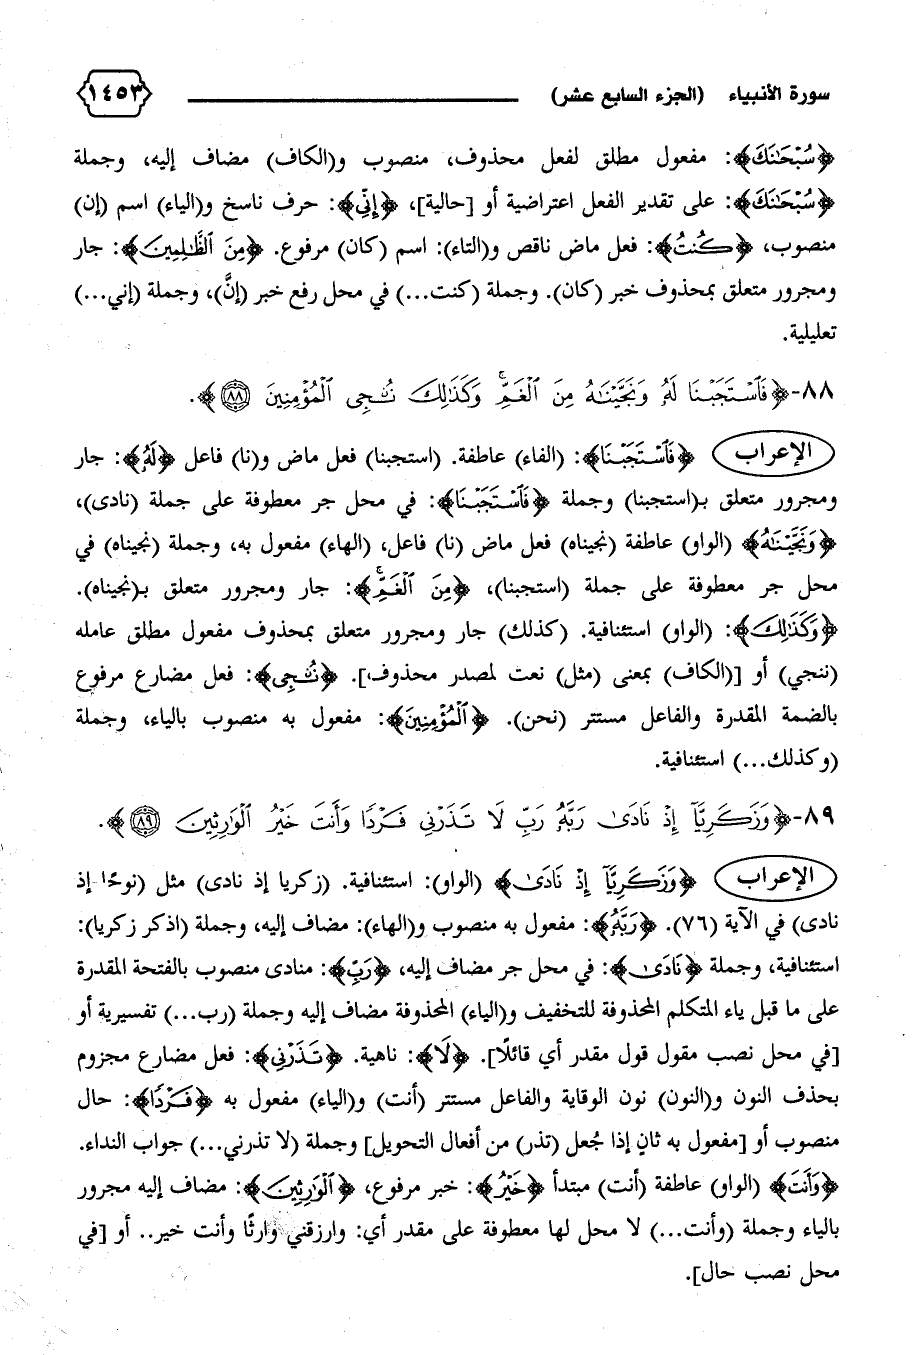 سورة الأنبياء (الجزء السابع عشر) ١٤٥٣
﴿سُبْحَٰنَكَ﴾: مفعول مطلق لفعل محذوف، منصوب و(الكاف) مضاف إليه، وجملة
﴿سُبْحَٰنَكَ﴾: على تقدير الفعل اعتراضية أو [حالية]، ﴿إِنِّي﴾: حرف ناسخ و(الياء) اسم (إن)
منصوب، ﴿كُنتُ﴾: فعل ماض ناقص و(التاء): اسم (كان) مرفوع. ﴿مِنَ ٱلظَّٰلِمِينَ﴾: جار
ومجرور متعلق بمحذوف خبر (كان). وجملة (كنت...) في محل رفع خبر (إنَّ)، وجملة (إني...)
تعليلية.
٨٨-﴿فَٱسْتَجَبْنَا لَهُۥ وَنَجَّيْنَٰهُ مِنَ ٱلْغَمِّ ۚ وَكَذَٰلِكَ نُۨجِى ٱلْمُؤْمِنِينَ ٨٨﴾.
الإعراب ﴿فَٱسْتَجَبْنَا﴾: (الفاء) عاطفة. (استجبنا) فعل ماض و(نا) فاعل ﴿لَهُۥ﴾: جار
ومجرور متعلق بـ(استجبنا) وجملة ﴿فَٱسْتَجَبْنَا﴾: في محل جر معطوفة على جملة (نادى)،
﴿وَنَجَّيْنَٰهُ﴾ (الواو) عاطفة (نجيناه) فعل ماض (نا) فاعل، (الهاء) مفعول به، وجملة (نجيناه) في
محل جر معطوفة على جملة (استجبنا)، ﴿مِنَ ٱلْغَمِّ ۚ﴾: جار ومجرور متعلق بـ(نجيناه).
﴿وَكَذَٰلِكَ﴾: (الواو) استئنافية. (كذلك) جار ومجرور متعلق بمحذوف مفعول مطلق عامله
(ننجي) أو [(الكاف) بمعنى (مثل) نعت لمصدر محذوف]. ﴿نُۨجِى﴾: فعل مضارع مرفوع
بالضمة المقدرة والفاعل مستتر (نحن). ﴿ٱلْمُؤْمِنِينَ﴾: مفعول به منصوب بالياء، وجملة
(وكذلك...) استئنافية.
٨٩-﴿وَزَكَرِيَّآ إِذْ نَادَىٰ رَبَّهُۥ رَبِّ لَا تَذَرْنِى فَرْدًا وَأَنتَ خَيْرُ ٱلْوَٰرِثِينَ ٨٩﴾.
الإعراب ﴿وَزَكَرِيَّآ إِذْ نَادَىٰ﴾ (الواو): استئنافية. (زكريا إذ نادى) مثل (نوحًا إذ
نادى) في الآية (٧٦). ﴿رَبَّهُۥ﴾: مفعول به منصوب و(الهاء): مضاف إليه، وجملة (اذكر زكريا):
استئنافية، وجملة ﴿نَادَىٰ﴾: في محل جر مضاف إليه، ﴿رَبِّ﴾: منادى منصوب بالفتحة المقدرة
على ما قبل ياء المتكلم المحذوفة للتخفيف و(الياء) المحذوفة مضاف إليه وجملة (رب...) تفسيرية أو
[في محل نصب مقول قول مقدر أي قائلًا]. ﴿لَا﴾: ناهية. ﴿تَذَرْنِى﴾: فعل مضارع مجزوم
بحذف النون و(النون) نون الوقاية والفاعل مستتر (أنت) و(الياء) مفعول به ﴿فَرْدًا﴾: حال
منصوب أو [مفعول به ثانٍ إذا جُعل (تذر) من أفعال التحويل] وجملة (لا تذرني...) جواب النداء.
﴿وَأَنتَ﴾ (الواو) عاطفة (أنت) مبتدأ ﴿خَيْرُ﴾: خبر مرفوع، ﴿ٱلْوَٰرِثِينَ﴾: مضاف إليه مجرور
بالياء وجملة (وأنت...) لا محل لها معطوفة على مقدر أي: وارزقني وارثًا وأنت خير.. أو [في
محل نصب حال].